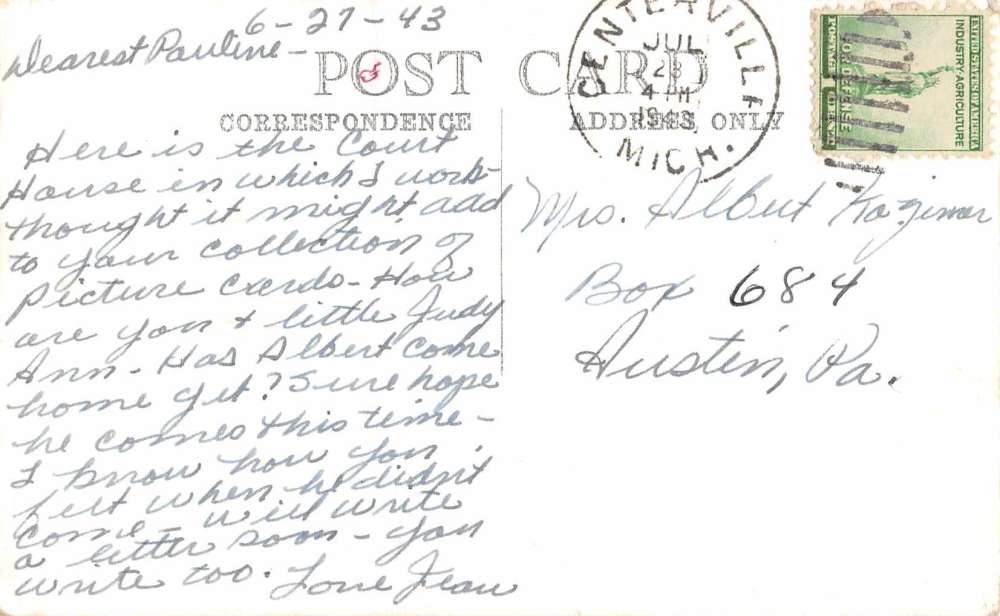 6-27-43
Dearest Pauline-
POST CARD
CORRESPONDENCE
ADDRESS ONLY
CENTERVILLE
JUL
28
4 PM
1943
MICH.
UNITED STATES OF AMERICA
INDUSTRY-AGRICULTURE
FOR DEFENSE
POSTAGE
Here is the Court
House in which I work-
thought it might add
to your collection of
picture cards- How
are you & little Judy
Ann- Has Albert come
home yet? Sure hope
he comes this time-
I know how you
felt when he didn't
come- will write
a letter soon- you
write too. Love Jean
Mrs. Albert Kazimer
Box 684
Austin, Pa.